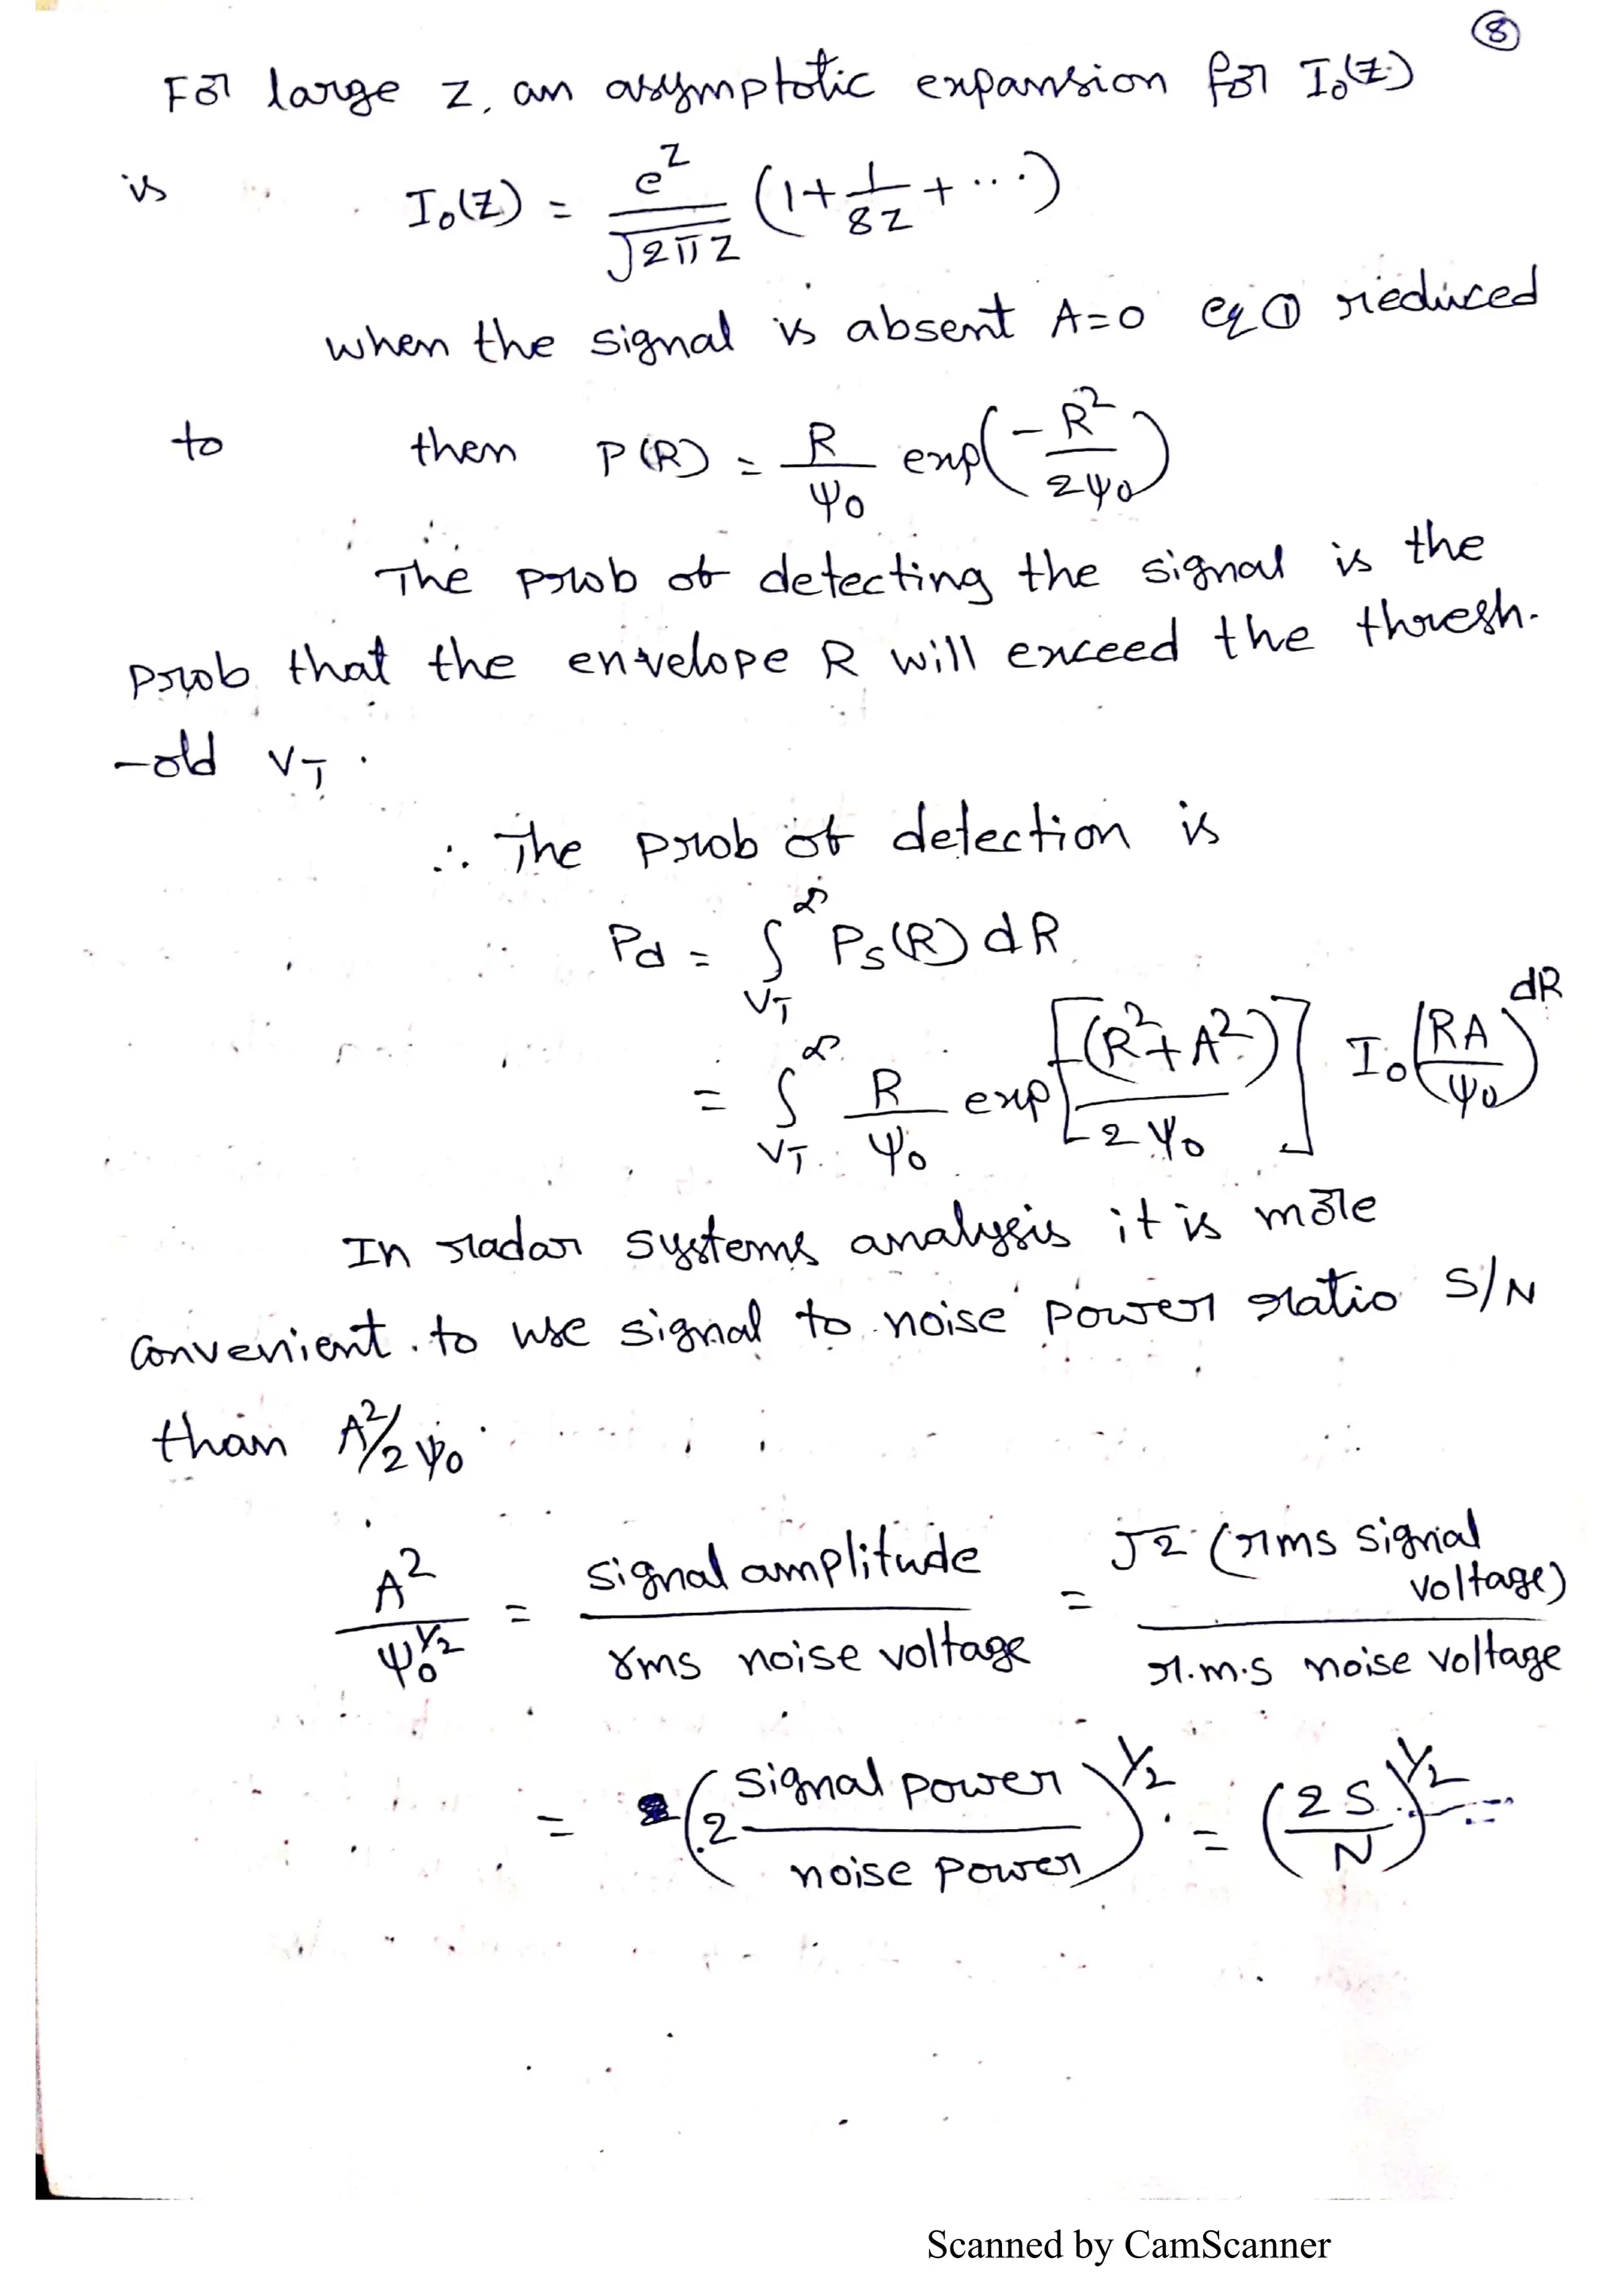 8
For large z, an asymptotic expansion for I₀(z)
is I₀(z) = e^z / √(2πz) (1 + 1/8z + ....)
when the signal is absent A=0 eq ① reduced
to then P(R) = R/ψ₀ exp(-R²/2ψ₀)
The prob of detecting the signal is the
prob that the envelope R will exceed the thresh-
-old V_T.
∴ The prob of detection is
Pd = ∫_{V_T}^{∞} Ps(R) dR
= ∫_{V_T}^{∞} R/ψ₀ exp[-(R²+A²)/2ψ₀] I₀(RA/ψ₀) dR
In radar systems analysis it is more
convenient to use signal to noise power ratio S/N
than A²/2ψ₀.
A²/ψ₀^{1/2} = signal amplitude / rms noise voltage = √2 (rms signal voltage) / r.m.s noise voltage
= (2 signal power / noise power)^{1/2} = (2S/N)^{1/2}
Scanned by CamScanner